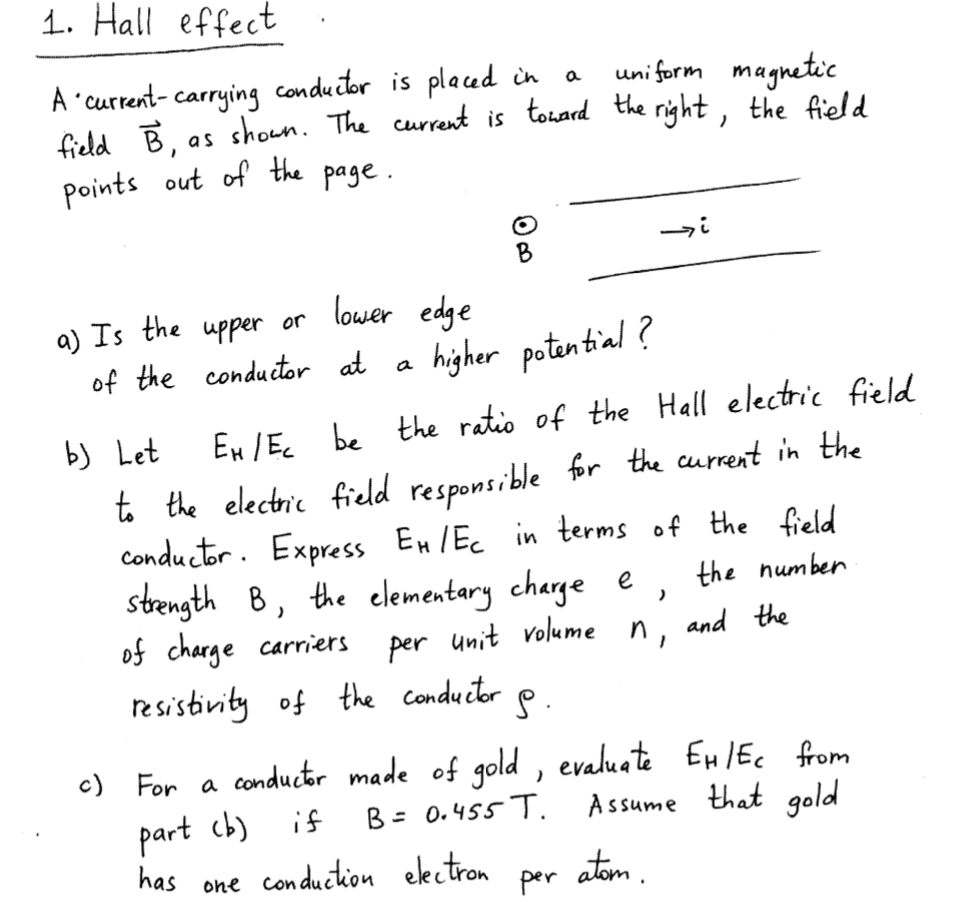 1. Hall effect
A current-carrying conductor is placed in a uniform magnetic
field B⃗, as shown. The current is toward the right, the field
points out of the page.
→i
B
a) Is the upper or lower edge
of the conductor at a higher potential?
b) Let E_H/E_C be the ratio of the Hall electric field
to the electric field responsible for the current in the
conductor. Express E_H/E_C in terms of the field
strength B, the elementary charge e, the number
of charge carriers per unit volume n, and the
resistivity of the conductor ρ.
c) For a conductor made of gold, evaluate E_H/E_C from
part (b) if B = 0.455 T. Assume that gold
has one conduction electron per atom.